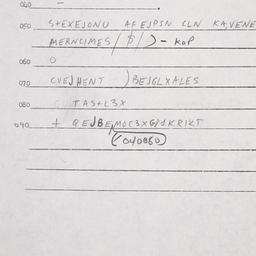 040 –
050 S+EXEJONU AFEJPSN CLN KA,VENE
MERNCIMES / $ / ) - KOP
060 O
070 CVEJHENT ) BEJGLXALES
080 TAS+L3X
090 + QEJBEMOC3XG/1KRIKT
(040060)